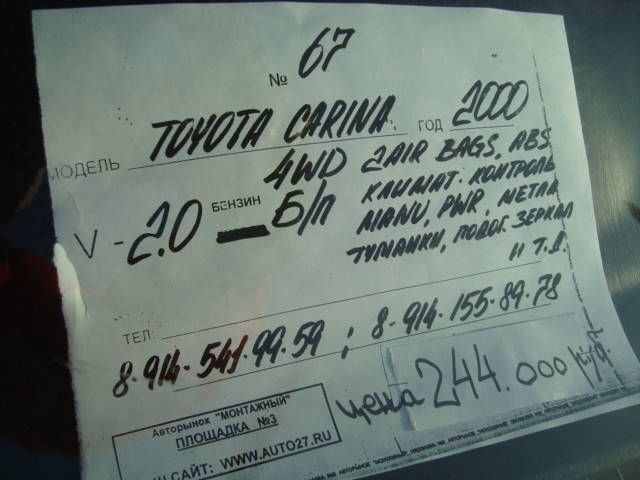 № 67
МОДЕЛЬ TOYOTA CARINA ГОД 2000
4WD 2AIR BAGS, ABS
V - 2.0 БЕНЗИН Б/П КЛИМАТ-КОНТРОЛЬ
МАНU, PWR, МЕТАЛ
ТУМАНКИ, ПОДОГ. ЗЕРКАЛ
И Т.Д.
ТЕЛ:
8-914-541-99-59 ; 8-914-155-89-78
цена 244.000
Авторынок "МОНТАЖНЫЙ"
ПЛОЩАДКА №3
САЙТ: WWW.AUTO27.RU